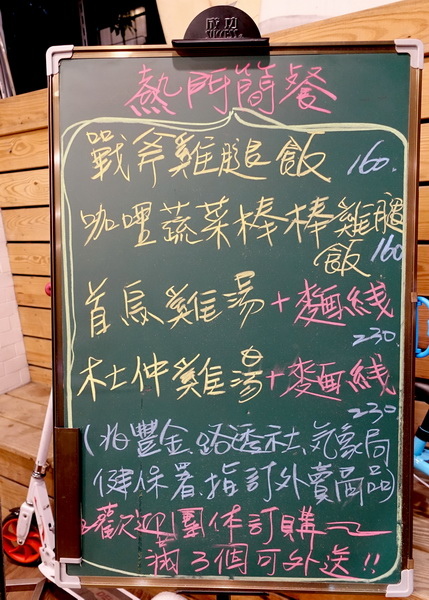 成功
SUCCESS
熱門簡餐
戰斧雞腿飯 160.
咖哩蔬菜棒棒雞腿
飯 160
首烏雞湯+麵線
230.
杜仲雞湯+麵線
230
(兆豐金、路透社、氣象局
健保署、指訂外賣商品)
歡迎團体訂購~
滿3個可外送!!